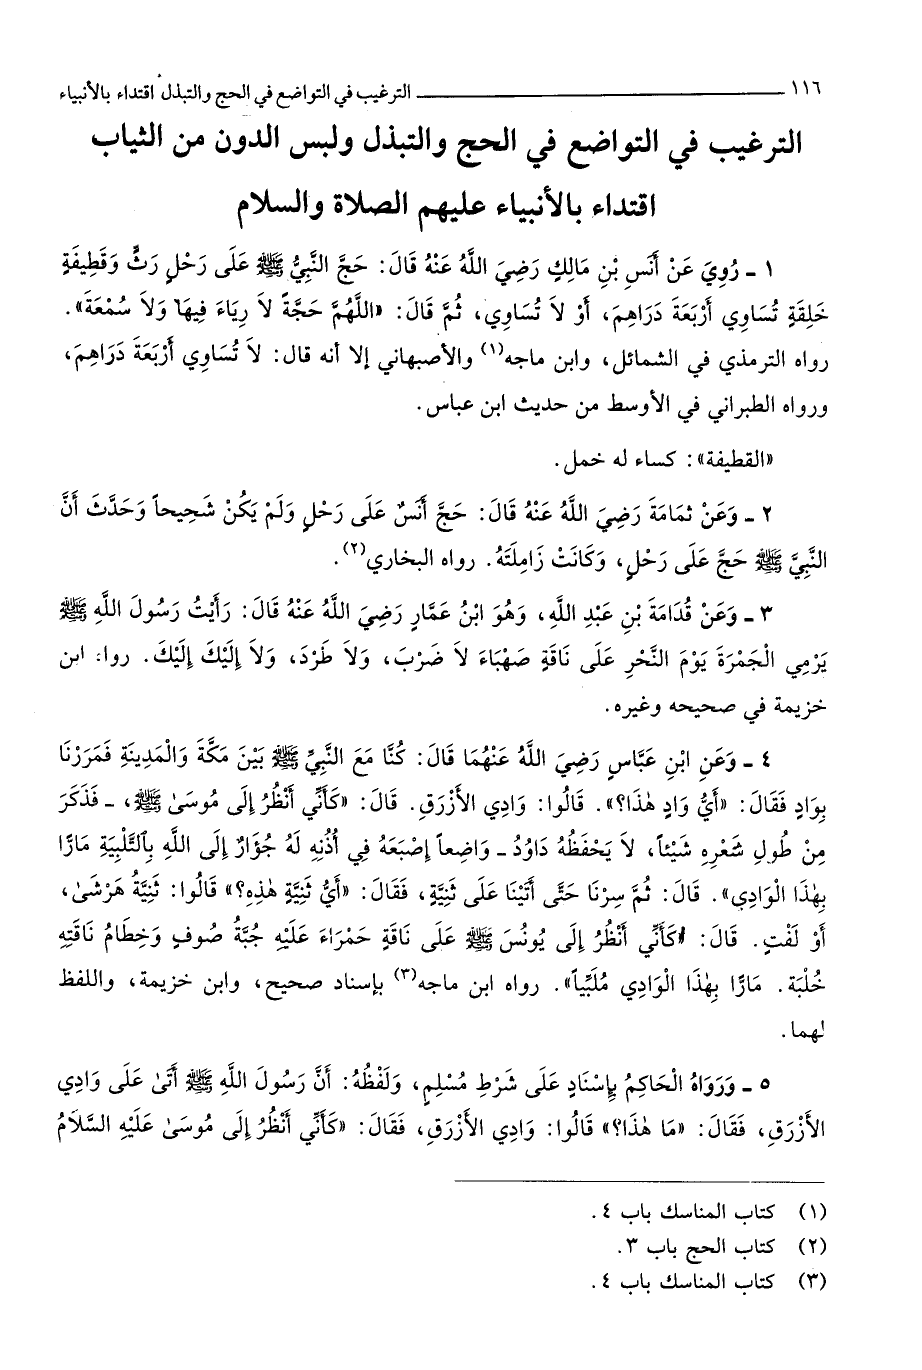 ١١٦ ــــــــــــ الترغيب في التواضع في الحج والتبذل اقتداء بالأنبياء
الترغيب في التواضع في الحج والتبذل ولبس الدون من الثياب
اقتداء بالأنبياء عليهم الصلاة والسلام
١ ـ رُوِيَ عَنْ أَنَسِ بْنِ مَالِكٍ رَضِيَ اللَّهُ عَنْهُ قَالَ: حَجَّ النَّبِيُّ ﷺ عَلَى رَحْلٍ رَثٍّ وَقَطِيفَةٍ
خَلِقَةٍ تُسَاوِي أَرْبَعَةَ دَرَاهِمَ، أَوْ لاَ تُسَاوِي، ثُمَّ قَالَ: «اللَّهُمَّ حَجَّةً لاَ رِيَاءَ فِيهَا وَلاَ سُمْعَةَ».
رواه الترمذي في الشمائل، وابن ماجه(١) والأصبهاني إلا أنه قال: لاَ تُسَاوِي أَرْبَعَةَ دَرَاهِمَ،
ورواه الطبراني في الأوسط من حديث ابن عباس.
«القطيفة»: كساء له خمل.
٢ ـ وَعَنْ ثمَامَةَ رَضِيَ اللَّهُ عَنْهُ قَالَ: حَجَّ أَنَسٌ عَلَى رَحْلٍ وَلَمْ يَكُنْ شَحِيحاً وَحَدَّثَ أَنَّ
النَّبِيَّ ﷺ حَجَّ عَلَى رَحْلٍ، وَكَانَتْ زَامِلَتَهُ. رواه البخاري(٢).
٣ ـ وَعَنْ قُدَامَةَ بْنِ عَبْدِ اللَّهِ، وَهُوَ ابْنُ عَمَّارٍ رَضِيَ اللَّهُ عَنْهُ قَالَ: رَأَيْتُ رَسُولَ اللَّهِ ﷺ
يَرْمِي الْجَمْرَةَ يَوْمَ النَّحْرِ عَلَى نَاقَةٍ صَهْبَاءَ لاَ ضَرْبَ، وَلاَ طَرْدَ، وَلاَ إِلَيْكَ إِلَيْكَ. رواه ابن
خزيمة في صحيحه وغيره.
٤ ـ وَعَنِ ابْنِ عَبَّاسٍ رَضِيَ اللَّهُ عَنْهُمَا قَالَ: كُنَّا مَعَ النَّبِيِّ ﷺ بَيْنَ مَكَّةَ وَالْمَدِينَةِ فَمَرَرْنَا
بِوَادٍ فَقَالَ: «أَيُّ وَادٍ هٰذَا؟». قَالُوا: وَادِي الأَزْرَقِ. قَالَ: «كَأَنِّي أَنْظُرُ إِلَى مُوسَىٰ ﷺ، ـ فَذَكَرَ
مِنْ طُولِ شَعْرِهِ شَيْئاً، لاَ يَحْفَظُهُ دَاوُدُ ـ وَاضِعاً إِصْبَعَهُ فِي أُذُنِهِ لَهُ جُؤَارٌ إِلَى اللَّهِ بِالتَّلْبِيَةِ مَارًّا
بِهٰذَا الْوَادِي». قَالَ: ثُمَّ سِرْنَا حَتَّى أَتَيْنَا عَلَى ثَنِيَّةٍ، فَقَالَ: «أَيُّ ثَنِيَّةٍ هٰذِهِ؟» قَالُوا: ثَنِيَّةُ هَرْشَىٰ،
أَوْ لَفْتٍ. قَالَ: «كَأَنِّي أَنْظُرُ إِلَى يُونُسَ ﷺ عَلَى نَاقَةٍ حَمْرَاءَ عَلَيْهِ جُبَّةُ صُوفٍ وَخِطَامُ نَاقَتِهِ
خُلْبَة. مَارًّا بِهٰذَا الْوَادِي مُلَبِّياً». رواه ابن ماجه(٣) بإسناد صحيح، وابن خزيمة، واللفظ
لهما.
٥ ـ وَرَوَاهُ الْحَاكِمُ بِإِسْنَادٍ عَلَى شَرْطِ مُسْلِمٍ، وَلَفْظُهُ: أَنَّ رَسُولَ اللَّهِ ﷺ أَتَىٰ عَلَى وَادِي
الأَزْرَقِ، فَقَالَ: «مَا هٰذَا؟» قَالُوا: وَادِي الأَزْرَقِ، فَقَالَ: «كَأَنِّي أَنْظُرُ إِلَى مُوسَىٰ عَلَيْهِ السَّلاَمُ
(١) كتاب المناسك باب ٤.
(٢) كتاب الحج باب ٣.
(٣) كتاب المناسك باب ٤.